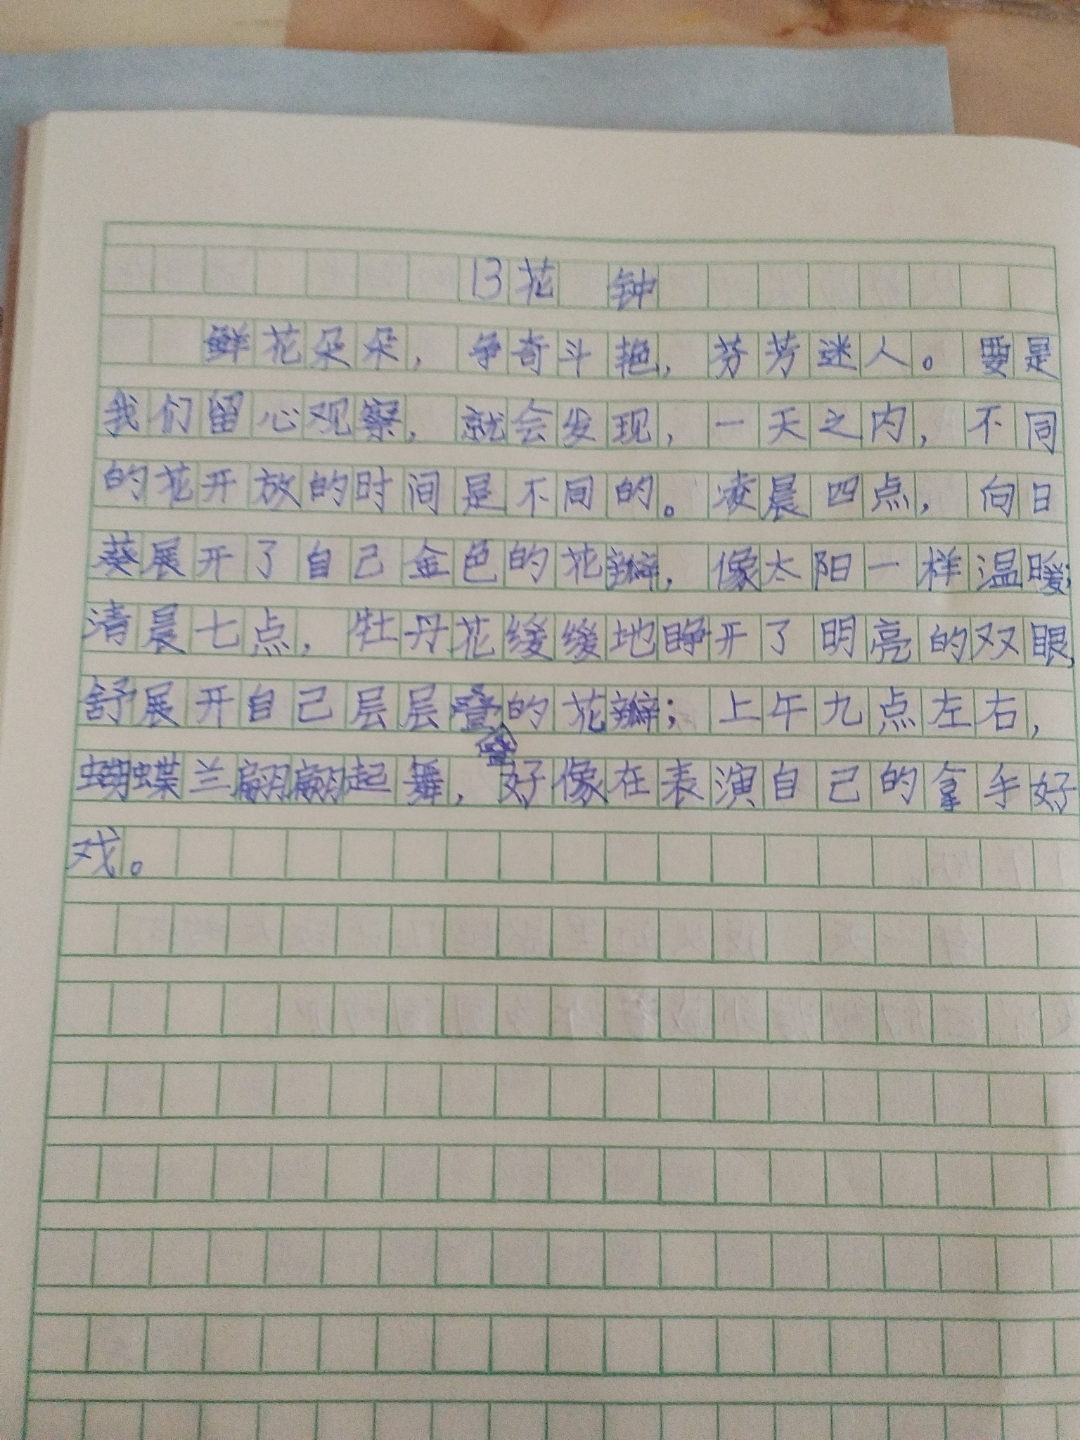 13花 钟
鲜花朵朵，争奇斗艳，芬芳迷人。要是
我们留心观察，就会发现，一天之内，不同
的花开放的时间是不同的。凌晨四点，向日
葵展开了自己金色的花瓣，像太阳一样温暖；
清晨七点，牡丹花缓缓地睁开了明亮的双眼，
舒展开自己层层叠的花瓣；上午九点左右，
叠
蝴蝶兰翩翩起舞，好像在表演自己的拿手好
戏。